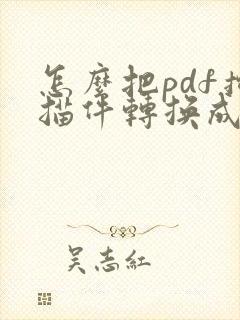 怎麼把pdf掃
描件轉換成
吳志紅